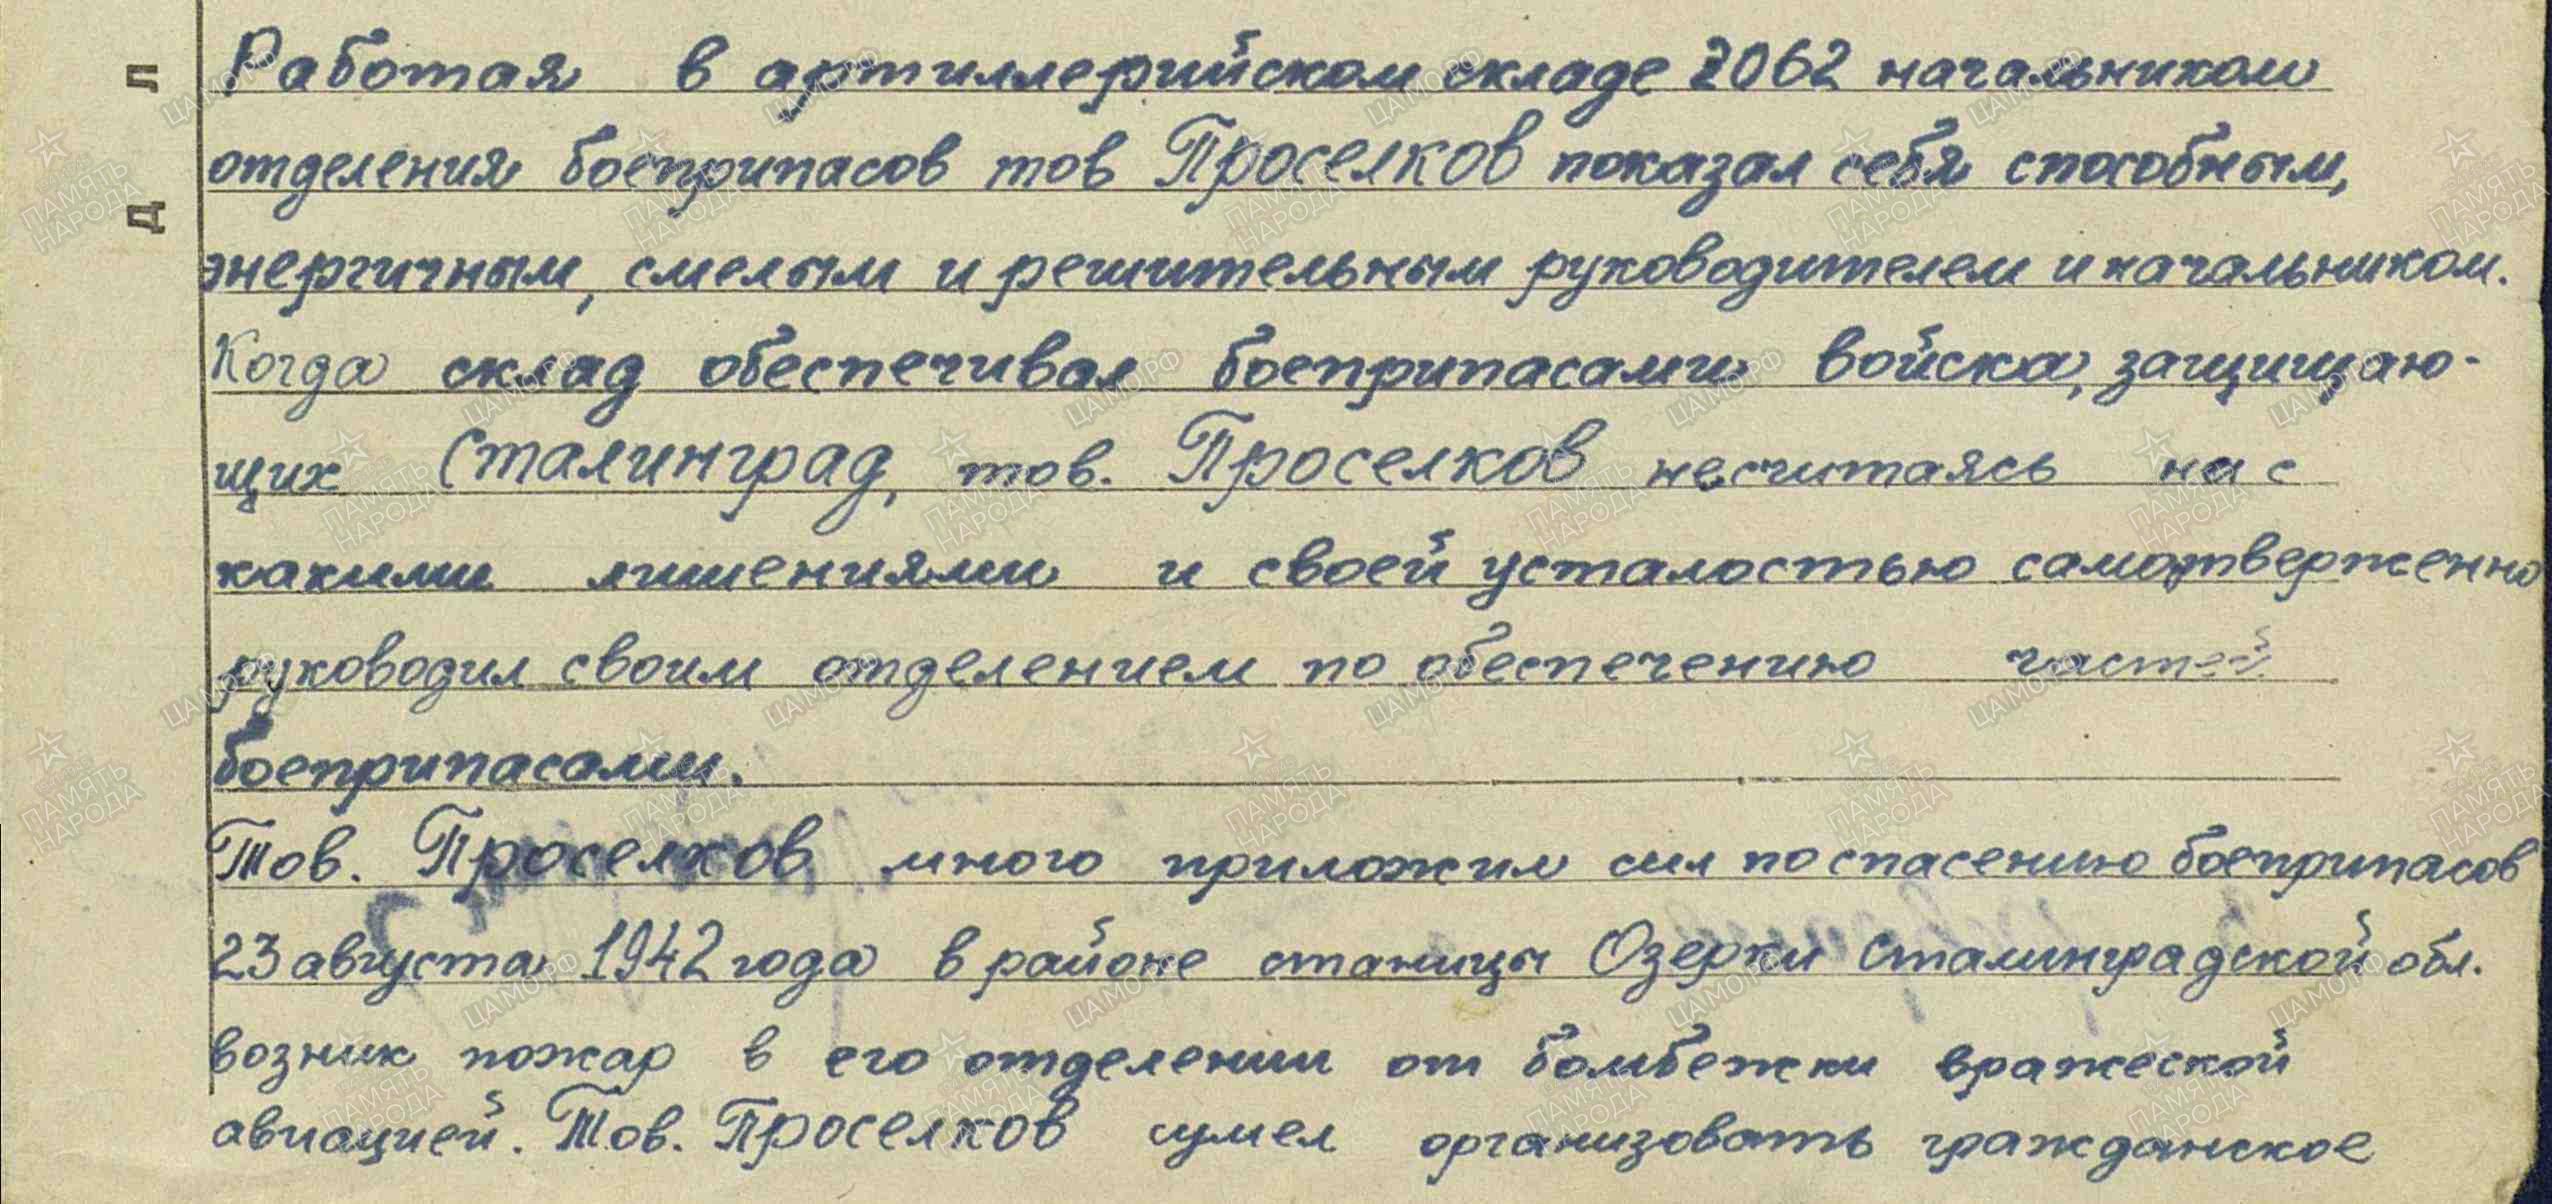 Работая в артиллерийском складе 2062 начальником
отделения боеприпасов тов Проселков показал себя способным,
энергичным, смелым и решительным руководителем и начальником.
Когда склад обеспечивал боеприпасами войска, защищаю-
щих Сталинград, тов. Проселков несчитаясь на с
какими лишениями и своей усталостью самоотверженно
руководил своим отделением по обеспечению частей
боеприпасами.
Тов. Проселков много приложил сил по спасению боеприпасов
23 августа 1942 года в районе станицы Озерки Сталинградской обл.
возник пожар в его отделении от бомбежки вражеской
авиацией. Тов. Проселков сумел организовать гражданское